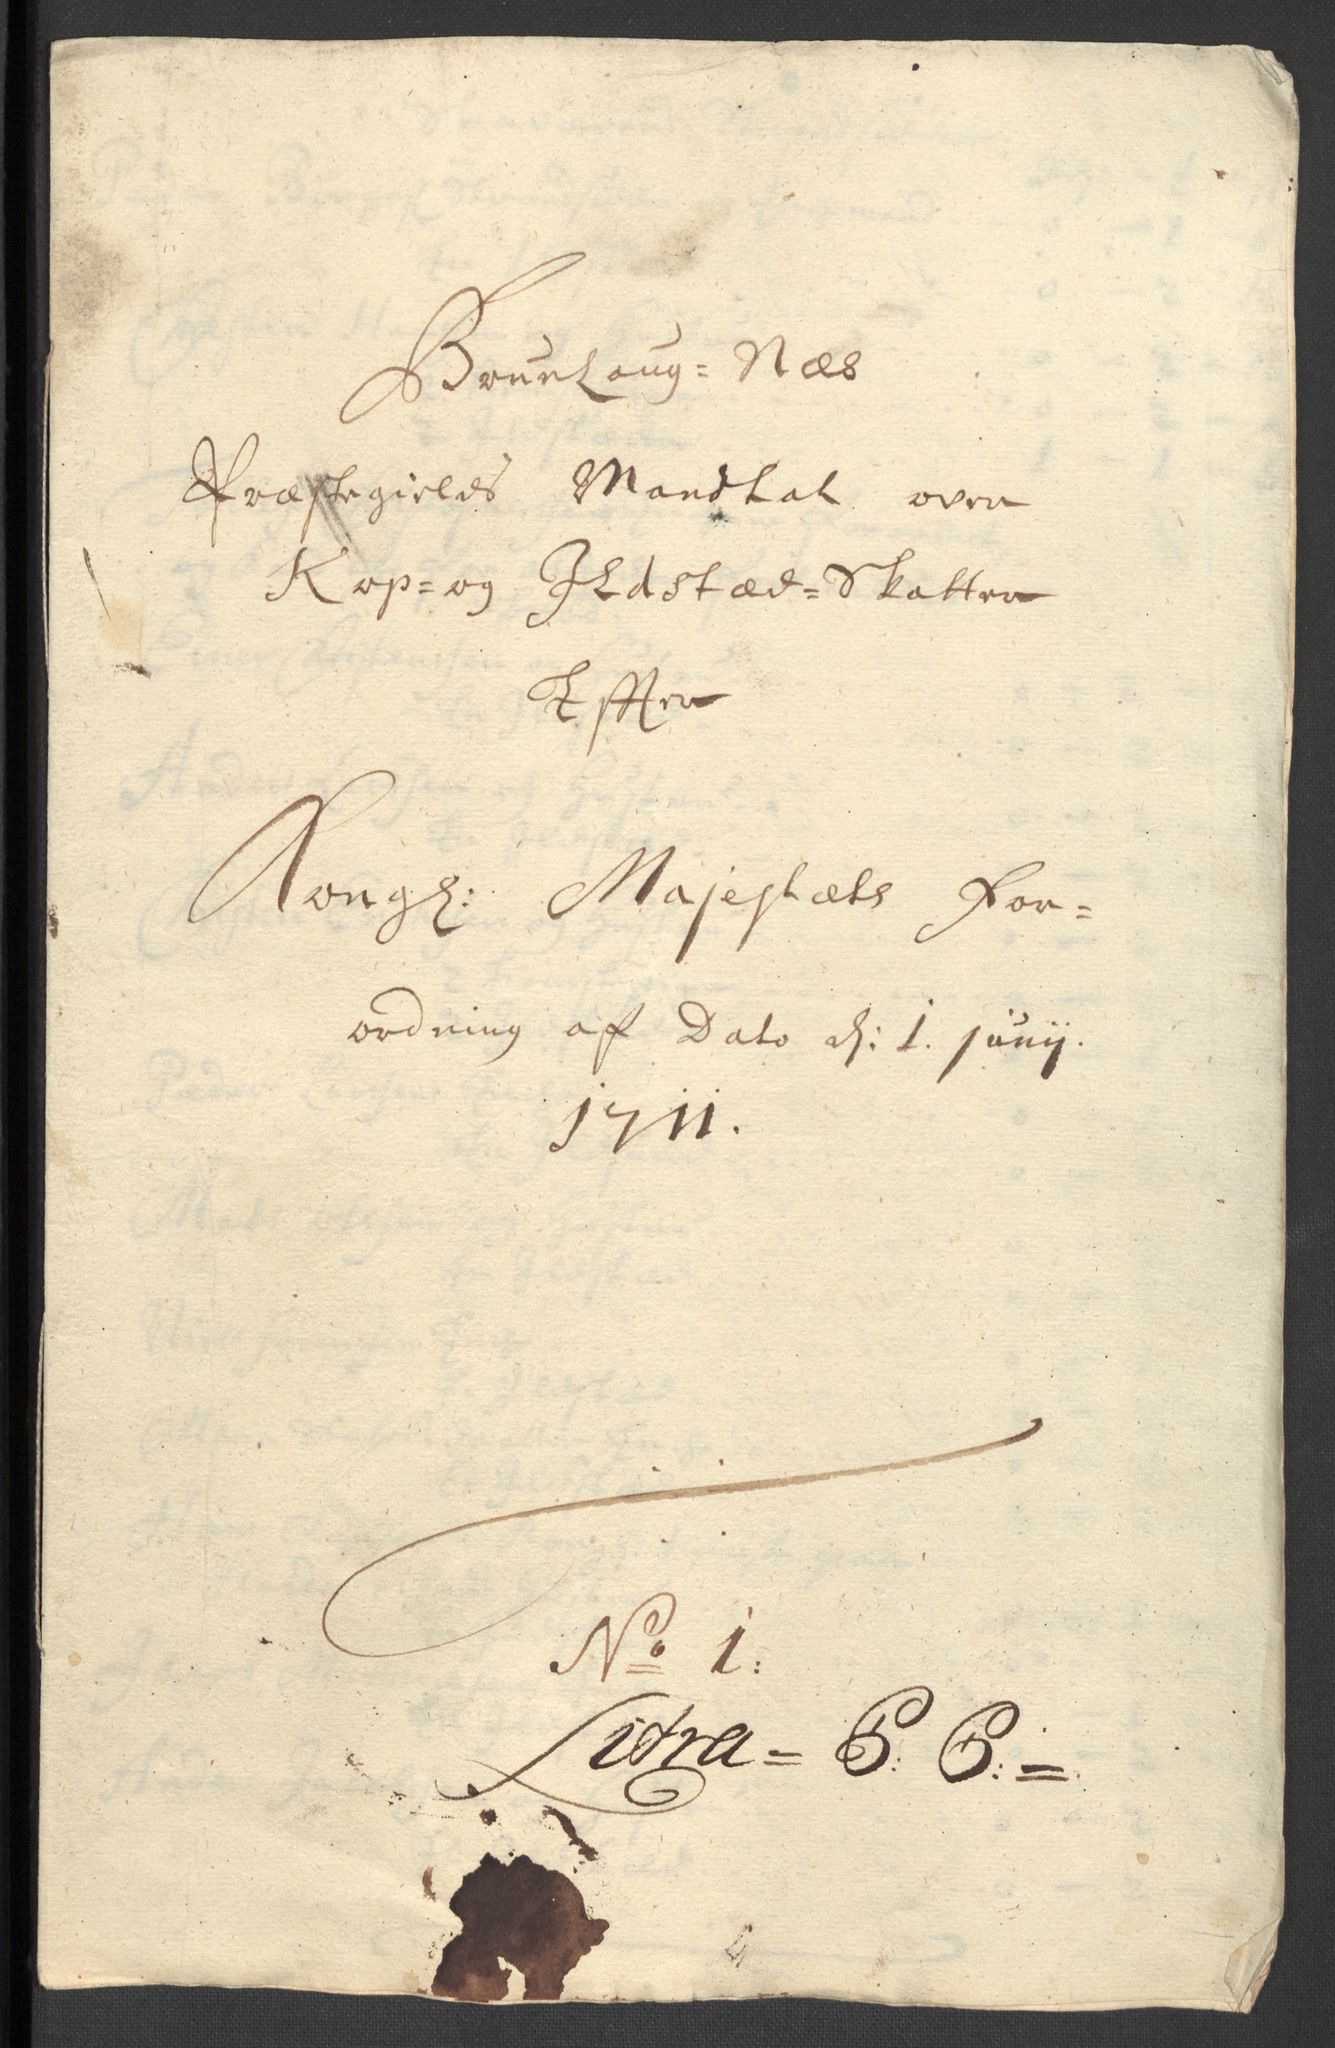 Brunlaug= Næs
Præstegields Mandtal over
Kop= og Ildstæd=Skatten
Efter
Kongl: Majestæts For=
ordning af Dato d: 1. junij.
1711.
No 1:
Litra= P: P:=